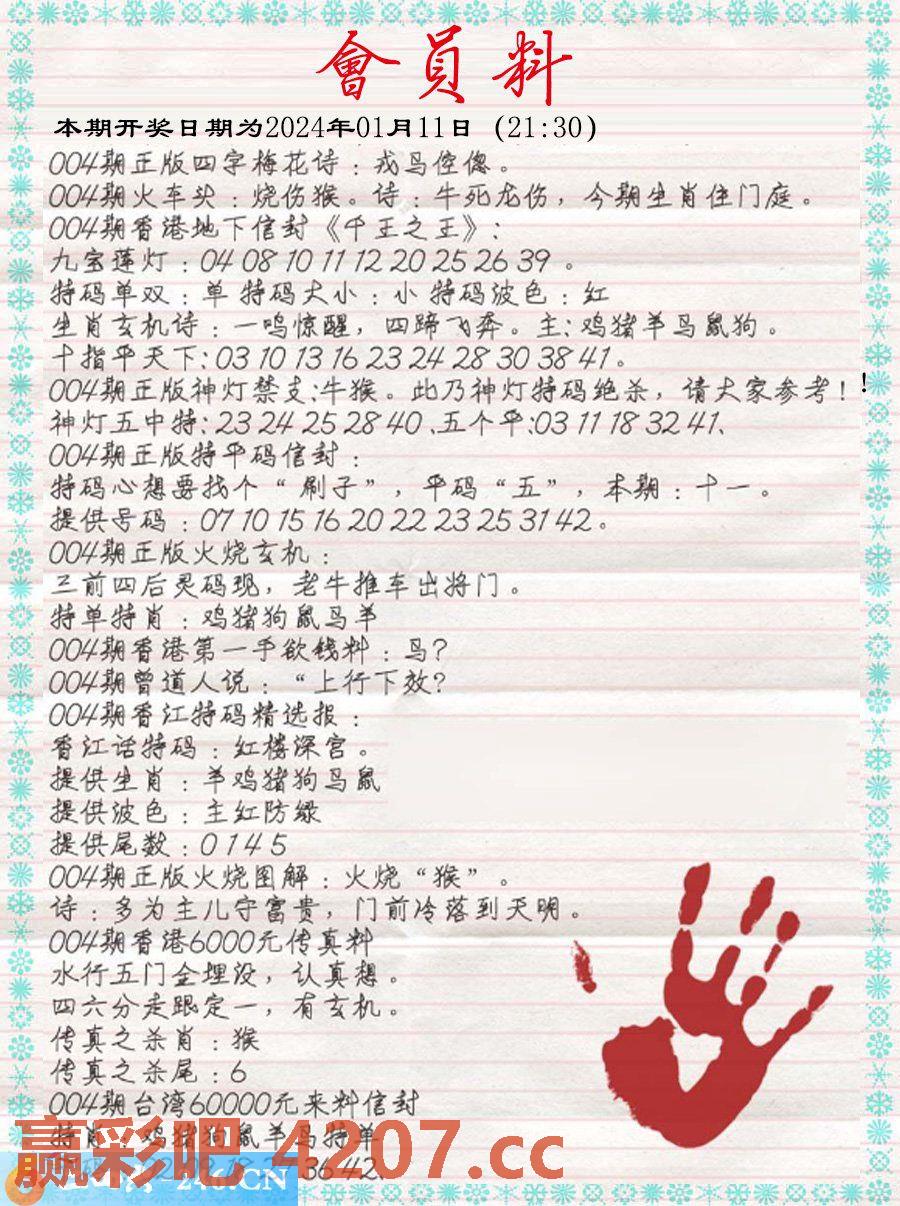 會員料
本期开奖日期为2024年01月11日（21:30）
004期正版四字梅花诗：戎马倥偬。
004期火车头：烧伤猴。诗：牛死龙伤，今期生肖住门庭。
004期香港地下信封《千王之王》：
九宝莲灯：04 08 10 11 12 20 25 26 39 。
特码单双：单 特码大小：小 特码波色：红
生肖玄机诗：一鸣惊醒，四蹄飞奔。主：鸡猪羊马鼠狗。
十指平天下：03 10 13 16 23 24 28 30 38 41。
004期正版神灯禁支：牛猴。此乃神灯特码绝杀，请大家参考！！
神灯五中特：23 24 25 28 40 、五个平：03 11 18 32 41、
004期正版特平码信封：
特码心想要找个“刷子”，平码“五”，本期：十一。
提供号码：07 10 15 16 20 22 23 25 31 42。
004期正版火烧玄机：
三前四后灵码现，老牛推车出将门。
特单特肖：鸡猪狗鼠马羊
004期香港第一手欲钱料：鸟？
004期曾道人说：“上行下效？
004期香江特码精选报：
香江话特码：红楼深宫。
提供生肖：羊鸡猪狗马鼠
提供波色：主红防绿
提供尾数：0 1 4 5
004期正版火烧图解：火烧“猴”。
诗：多为主儿守富贵，门前冷落到天明。
004期香港6000元传真料
水行五门金埋没，认真想。
四六分走跟定一，有玄机。
传真之杀肖：猴
传真之杀尾：6
004期台湾60000元来料信封
特肖：鸡猪狗鼠羊马特单
36 42、
赢彩吧4207.cc
246.CN